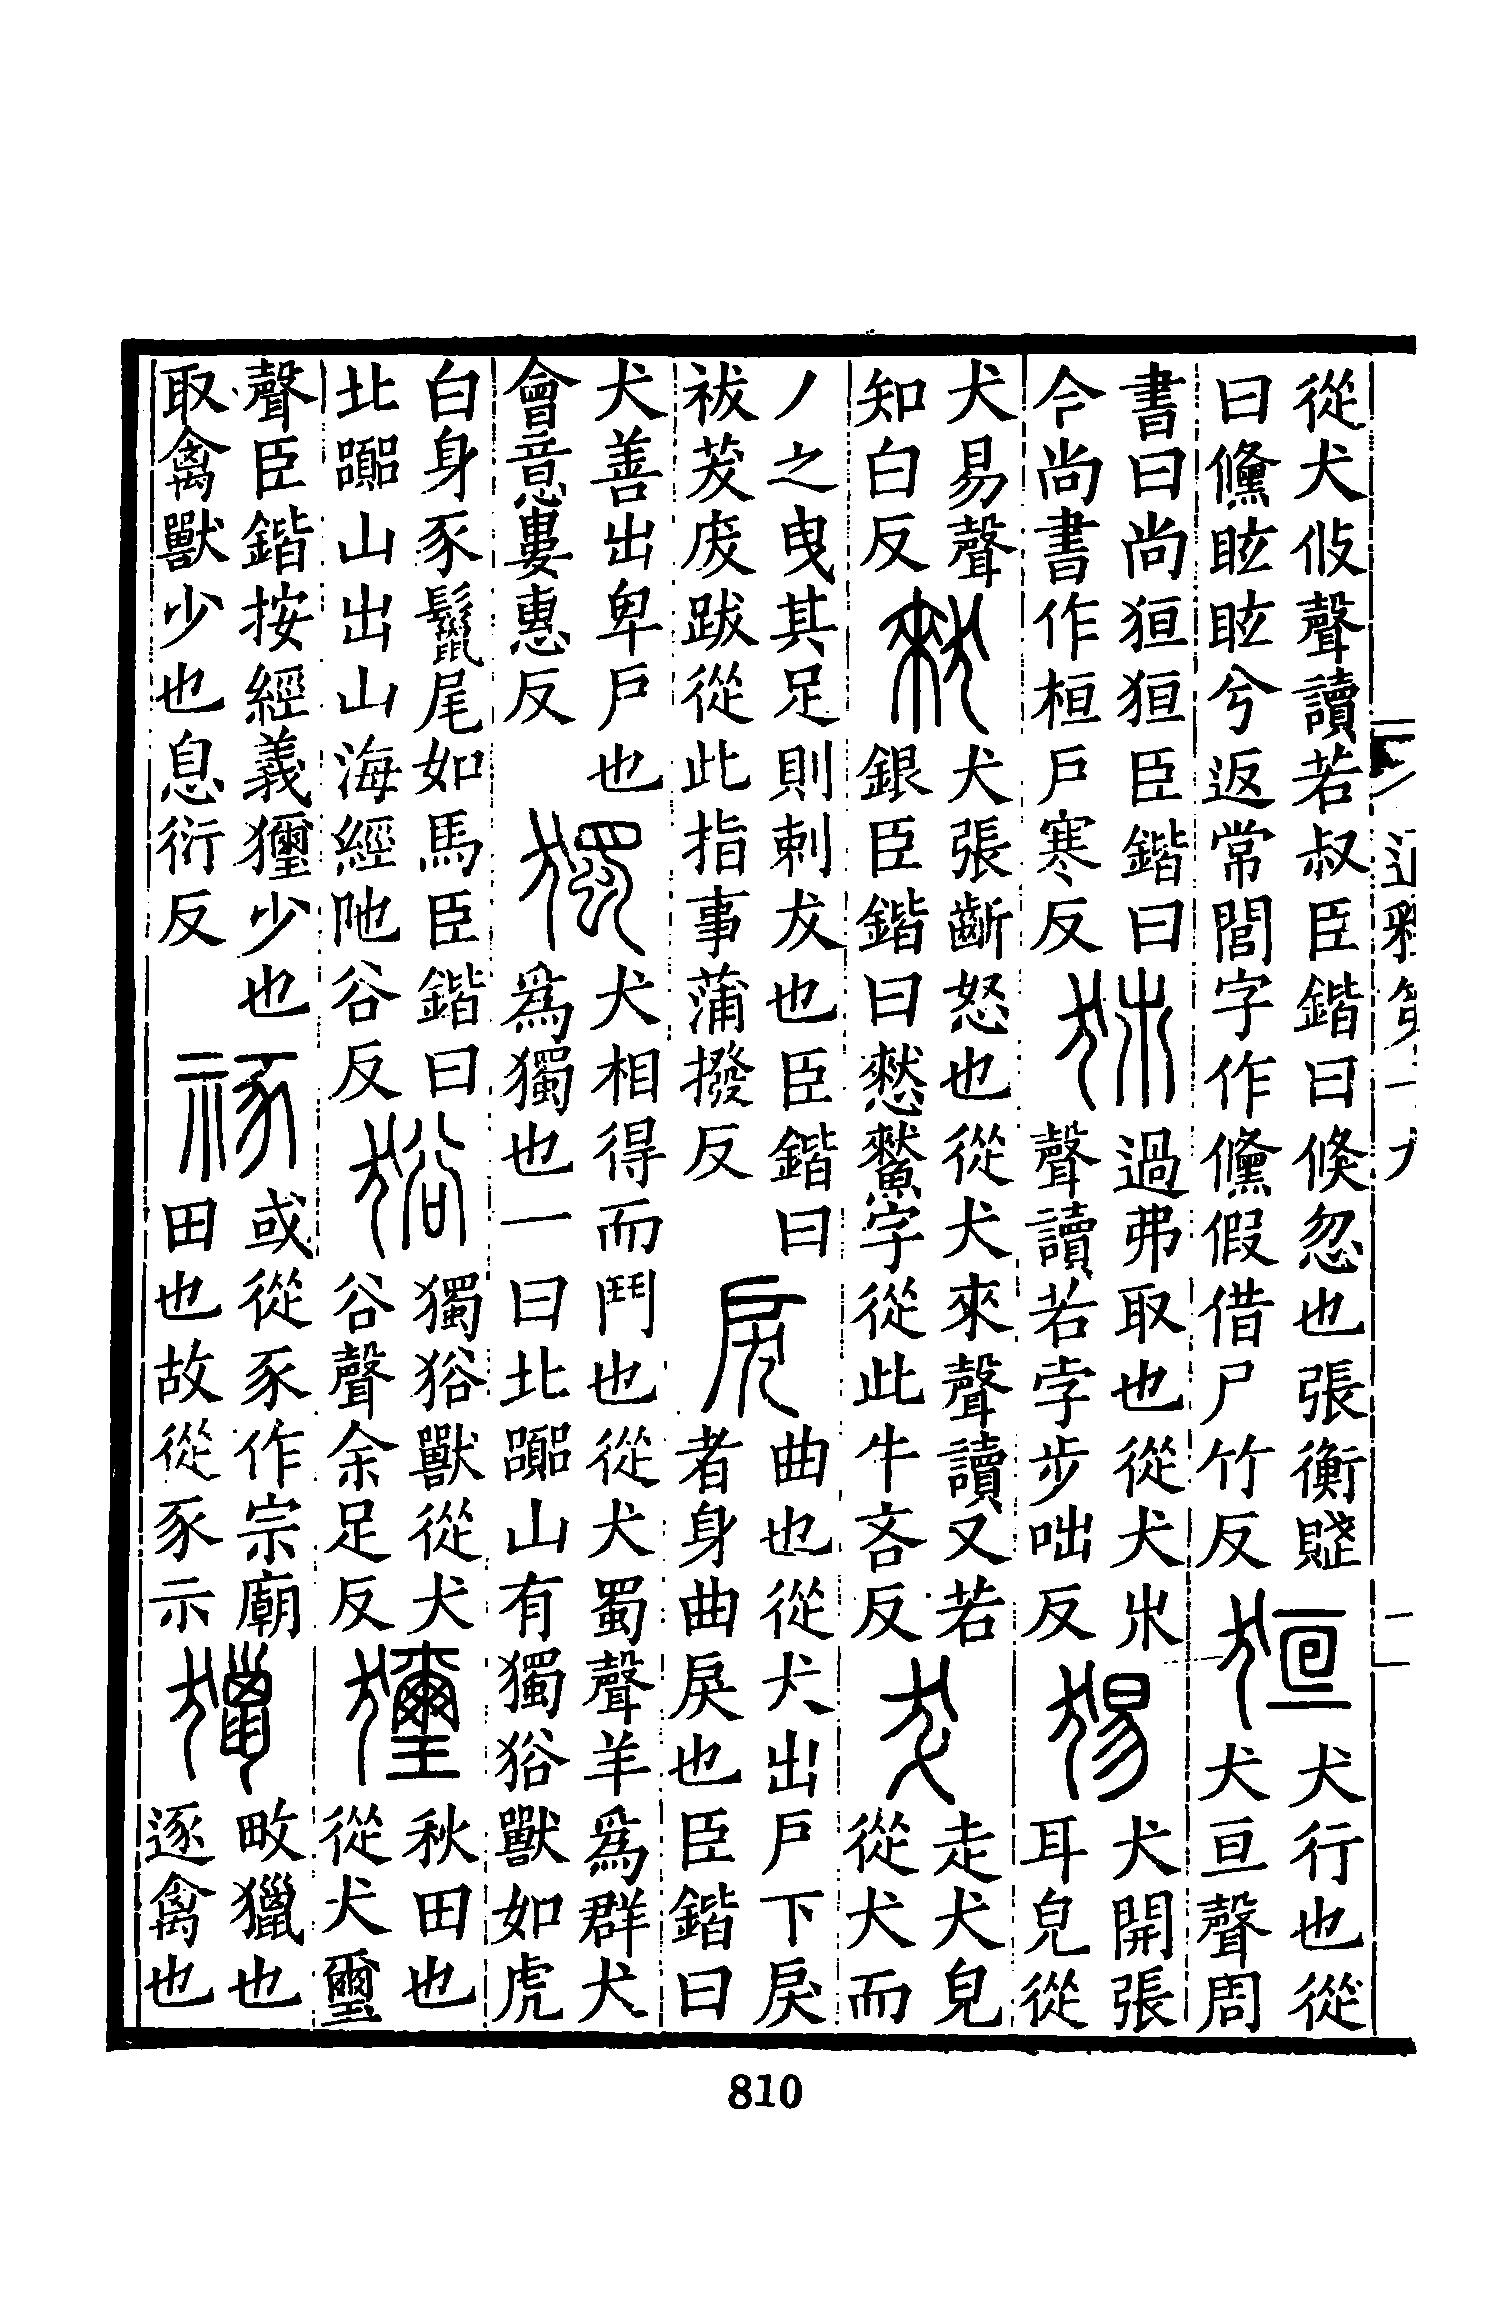 從犬攸聲讀若叔臣鍇曰倏忽也張衡賦
曰儵眩眩兮返常閭字作儵假借尸竹反
狟
犬行也從
犬亘聲周
書曰尚狟狟臣鍇曰
今尚書作桓戶寒反
過弗取也從犬𣎵
聲讀若孛步咄反
犬開張
耳皃從
犬易聲
知白反
猌
犬張齗怒也從犬來聲讀又若
銀臣鍇曰憖字從此牛吝反
犮
走犬皃
從犬而
丿之曳其足則剌犮也臣鍇曰
祓茇废跋從此指事蒲撥反
戾
曲也從犬出戶下戾
者身曲戾也臣鍇曰
犬善出卑戶也
會意婁惠反
獨
犬相得而鬥也從犬蜀聲羊為群犬
為獨也一曰北嚻山有獨𤞞獸如虎
白身豕鬣尾如馬臣鍇曰
北嚻山出山海經阤谷反
𤞞
獨𤞞獸從犬
谷聲余足反
玺
秋田也
從犬璽
聲臣鍇按經義少也
取禽獸少也息衍反
或從豕作宗廟
田也故從豕示
獵
畋獵也
逐禽也
810